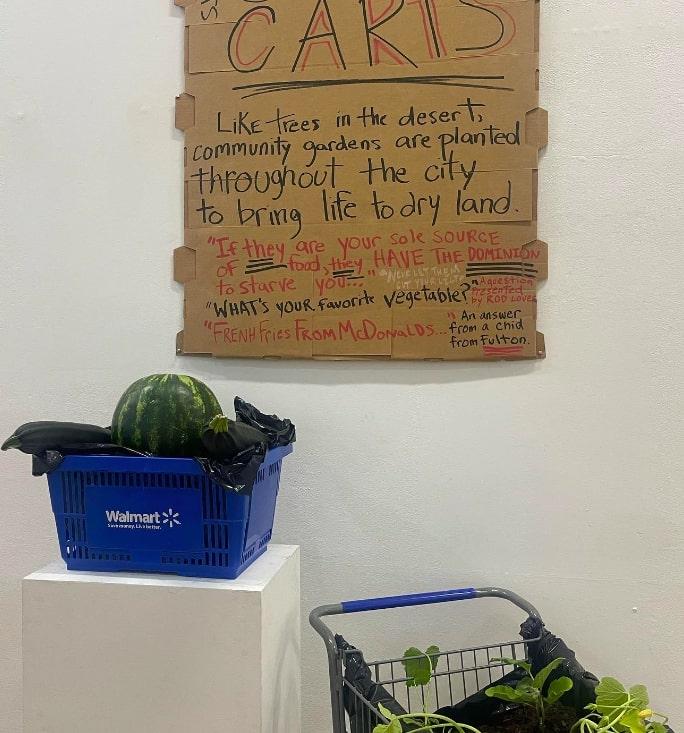 CARTS
Like trees in the desert,
community gardens are planted
throughout the city
to bring life to dry land.
"If they are your sole SOURCE
of food, they HAVE THE DOMINION
to starve you..."
"NEVER LET THEM
CUT YOUR
"WHAT'S YOUR favorite vegetable?"
A question
Presented
by ROD LOVER
"FRENH Fries FROM McDONALDS...
"An answer
from a chid
from Fulton.
Walmart
Save money. Live better.